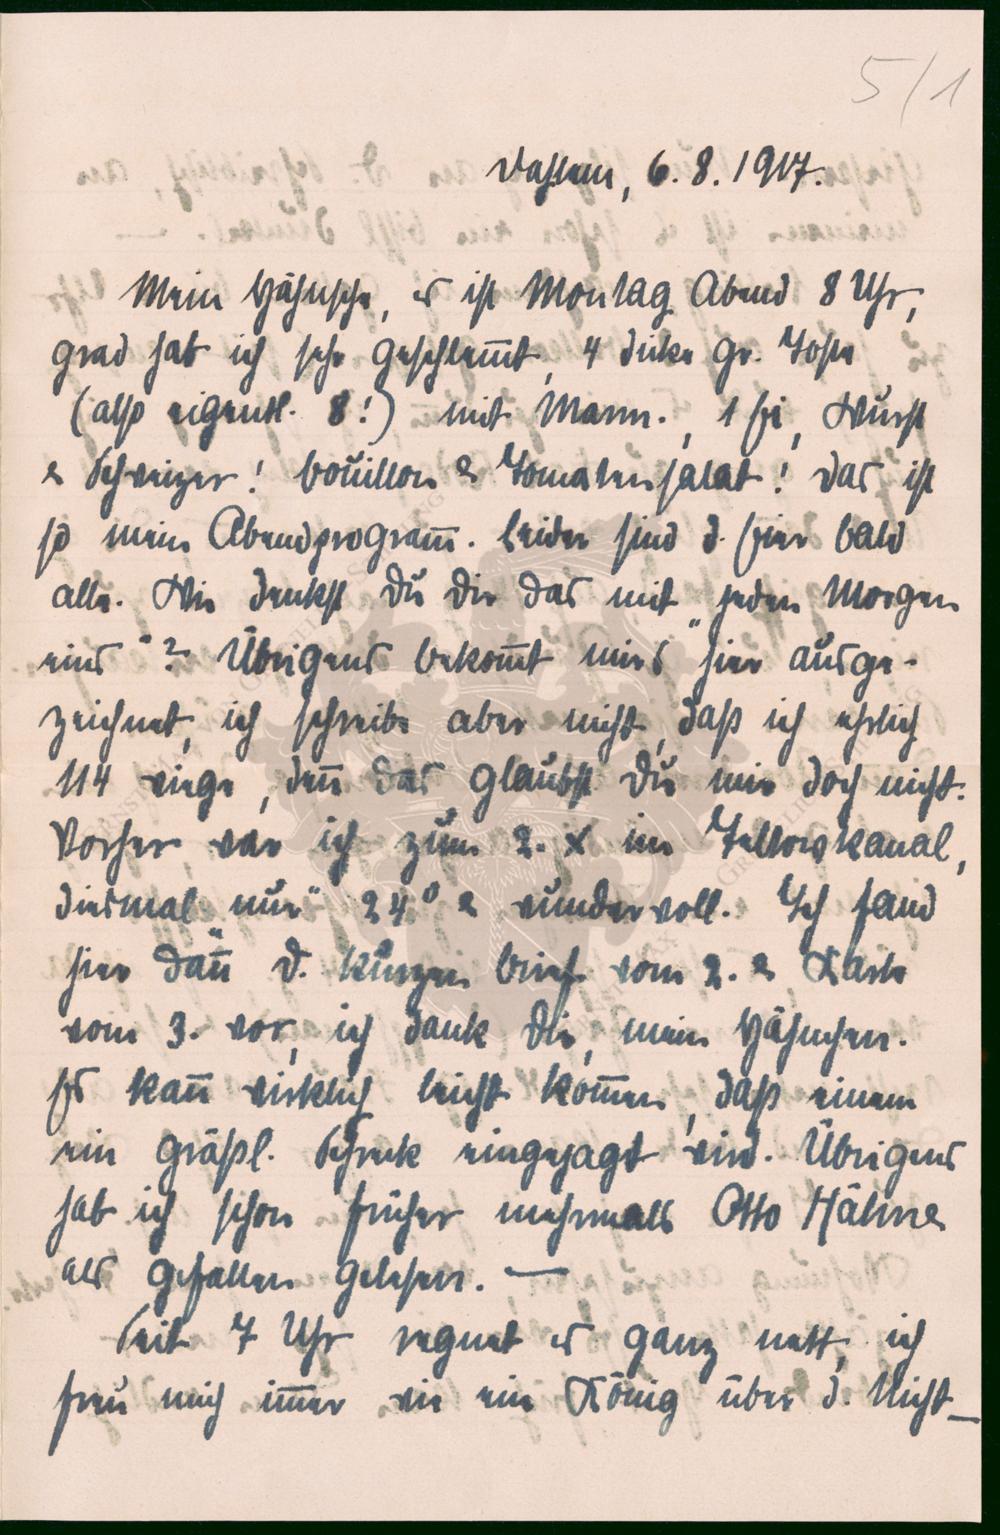 5/1
Dahlem, 6. 8. 1917.
Mein Hähnsche, es ist Montag Abend 8 Uhr,
grad hab ich sehr geschlem̅t, 4 dicke gr. Toste
(also eigentl. 8!) mit Marm., 1 Ei, Wurst
& Schweizer! Bouillon & Tomatensalat! Das ist
so mein Abendprogram̅. Leider sind d. Eier bald
alle. Wie denkst Du Dir das mit „jeden Morgen
eins“? Übrigens bekom̅t mirs hier ausge-
zeichnet, ich schreibe aber nicht, daß ich ehrlich
114 wiege, den̅ das glaubst Du mir doch nicht.
Vorher war ich zum 2. x im Teltowkanal,
diesmal „nur“ 24° & wundervoll. Ich fand
hier dan̅ d. kurzen Brief vom 2. & Karte
vom 3. vor, ich dank Dir, mein Hähnchen.
Es kan̅ wirklich leicht kom̅en, daß einem
ein gräßl. Schreck eingejagt wird. Übrigens
hab ich schon früher mehrmals Otto Hähne
als gefallen gelesen. —
Seit 7 Uhr regnet es ganz nett, ich
freu mich im̅er wie ein König über d. Nicht-